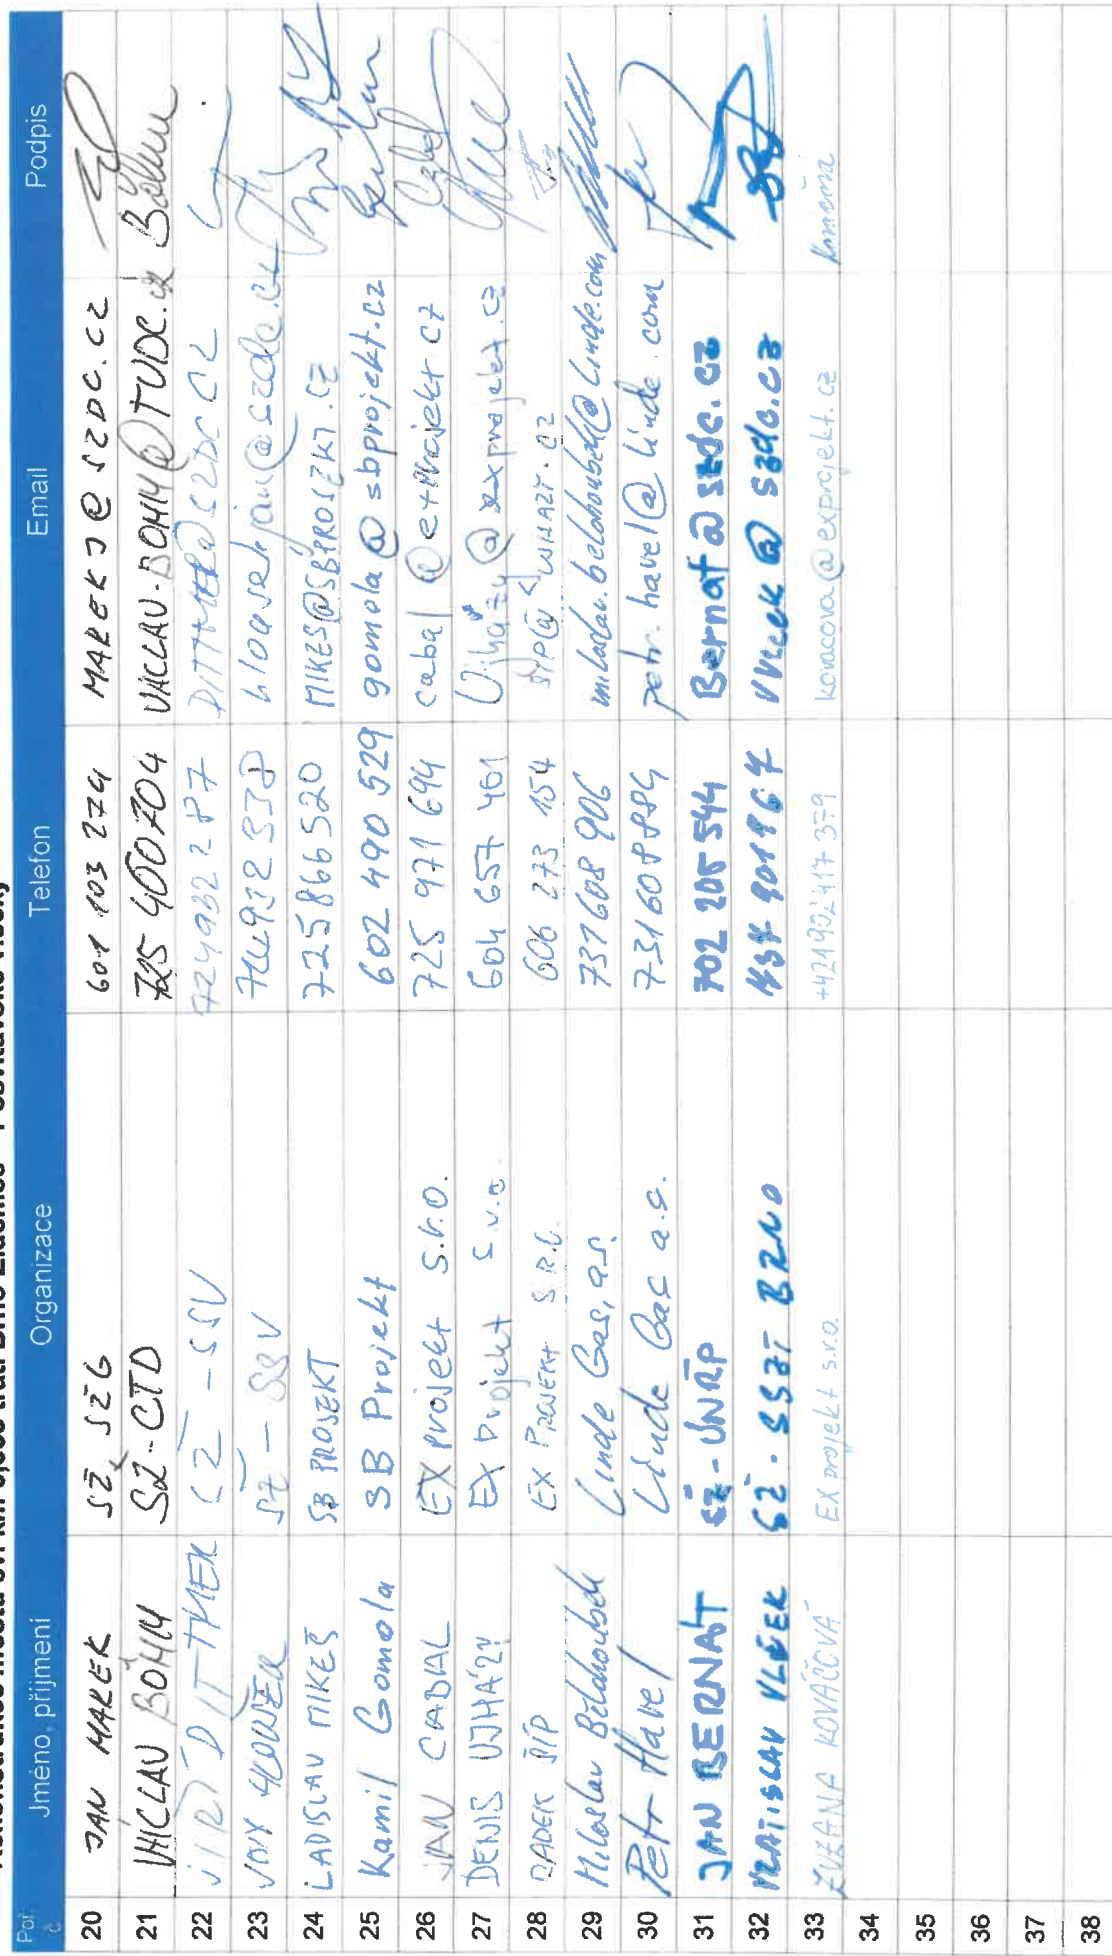 Poř. č. Jméno, příjmení Organizace Telefon Email Podpis
20 JAN MAREK SŽ, SŽG 601 103 274 MAREKJ@SZDC.CZ
21 VÁCLAV BÖHM SŽ-CTD 725 400704 VACLAV.BOHM@TUDC.cz Böhm
22 JIŘÍ DITTMER SŽ - SSV 724932287 DITTMER@SZDC CZ
23 SŽ - SSV @szdc.cz
24 LADISLAV MIKEŠ SB PROJEKT 725866520 MIKES@SBPROJEKT.CZ
25 Kamil Gomola SB Projekt 602 490 529 gomola@sbprojekt.cz
26 JAN CABAL EX projekt s.r.o. 725 971 694 cabal@exprojekt.cz
27 DENIS UJHÁZY EX projekt s.r.o. 604 657 461 Ujhazy@exprojekt.cz
28 RADEK ŠÍP EX PROJEKT S.R.O. 606 273 154
29 Miloslav Bělohoubek Linde Gas, a.s. 737608 906 miloslav.belohoubek@linde.com
30 Petr Havel Linde Gas a.s. petr.havel@linde.com
31 JAN BERNAT SŽ - ÚNŘP 702 205 544 Bernat@szdc.cz
32 VRATISLAV VLČEK SŽ - SSZT BRNO Vlcek@szdc.cz
33 ZUZANA KOVÁČOVÁ EX projekt s.r.o. +421902 417 379 kovacova@exprojekt.cz
34
35
36
37
38